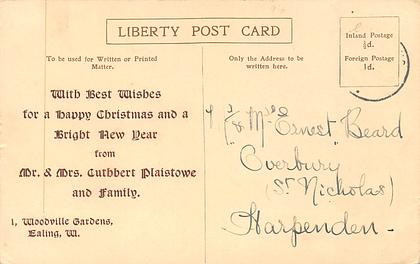 LIBERTY POST CARD
Inland Postage
½d.
Foreign Postage
1d.
To be used for Written or Printed
Matter.
Only the Address to be
written here.
With Best Wishes
for a Happy Christmas and a
Bright New Year
from
Mr. & Mrs. Cuthbert Plaistowe
and Family.
1, Woodville Gardens,
Ealing, W.
& Mrs Ernest Beard
"Overbury"
(St Nicholas)
Harpenden -